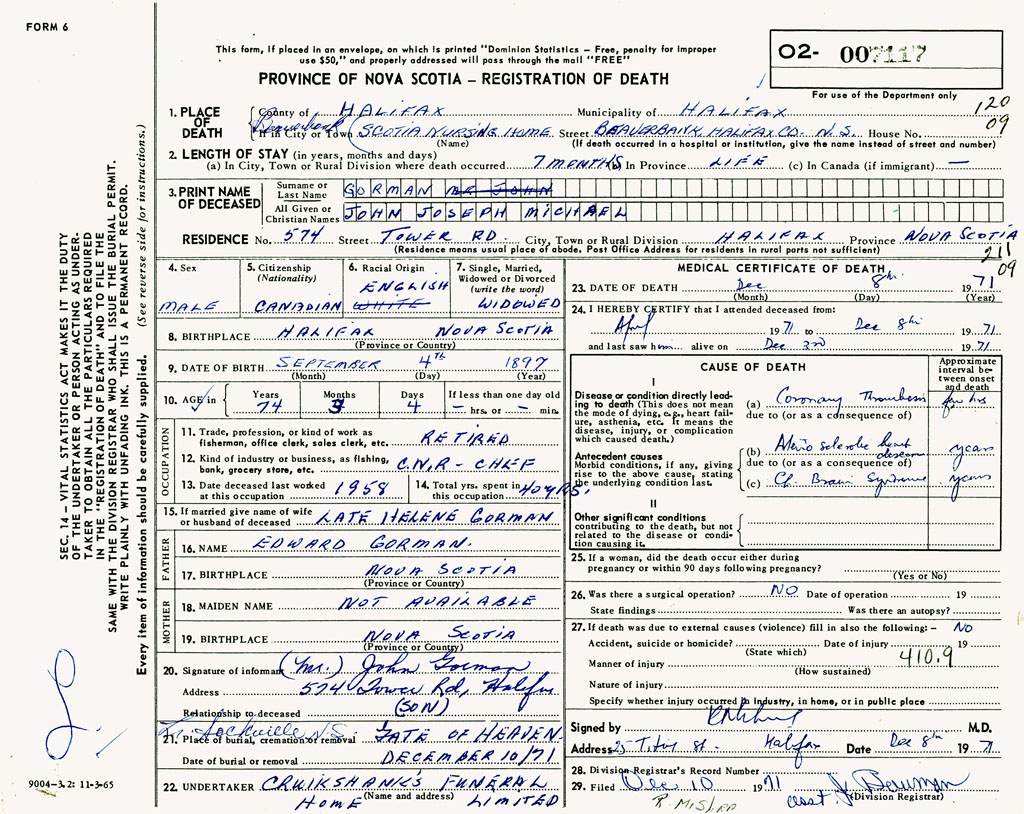 FORM 6
This form, if placed in an envelope, on which is printed "Dominion Statistics – Free, penalty for improper
use $50," and properly addressed will pass through the mail "FREE"
PROVINCE OF NOVA SCOTIA – REGISTRATION OF DEATH
O2- 007117
For use of the Department only
120
09
1. PLACE OF DEATH
County of HALIFAX Municipality of HALIFAX
Beaverbank
If in City or Town SCOTIA NURSING HOME Street BEAVERBANK, HALIFAX CO. N.S. House No.
(Name) (If death occurred in a hospital or institution, give the name instead of street and number)
2. LENGTH OF STAY (in years, months and days)
(a) In City, Town or Rural Division where death occurred 7 MONTHS (b) In Province LIFE (c) In Canada (if immigrant) —
3. PRINT NAME OF DECEASED
Surname or Last Name GORMAN MR JOHN
All Given or Christian Names JOHN JOSEPH MICHAEL
RESIDENCE No. 574 Street TOWER RD City, Town or Rural Division HALIFAX Province NOVA SCOTIA
(Residence means usual place of abode. Post Office Address for residents in rural parts not sufficient)
211
09
4. Sex
MALE
5. Citizenship
(Nationality)
CANADIAN
6. Racial Origin
ENGLISH
WHITE
7. Single, Married,
Widowed or Divorced
(write the word)
WIDOWED
8. BIRTHPLACE HALIFAX NOVA SCOTIA
(Province or Country)
9. DATE OF BIRTH SEPTEMBER 4TH 1897
(Month) (Day) (Year)
10. AGE in
Years 74
Months 3
Days 4
If less than one day old
– hrs. or – min.
OCCUPATION
11. Trade, profession, or kind of work as
fisherman, office clerk, sales clerk, etc. RETIRED
12. Kind of industry or business, as fishing,
bank, grocery store, etc. C.N.R - CHEF
13. Date deceased last worked
at this occupation 1958
14. Total yrs. spent in
this occupation 40 YRS.
15. If married give name of wife
or husband of deceased LATE HELENE GORMAN
FATHER
16. NAME EDWARD GORMAN.
17. BIRTHPLACE NOVA SCOTIA
(Province or Country)
MOTHER
18. MAIDEN NAME NOT AVAILABLE
19. BIRTHPLACE NOVA SCOTIA
(Province or Country)
20. Signature of informant (Mr.) John Gorman
Address 574 Tower Rd, Halifax
Relationship to deceased (SON)
Sackville N.S.
21. Place of burial, cremation or removal GATE OF HEAVEN
Date of burial or removal DECEMBER 10/71
22. UNDERTAKER CRUIKSHANK'S FUNERAL
(Name and address)
HOME LIMITED
MEDICAL CERTIFICATE OF DEATH
23. DATE OF DEATH Dec 8th 1971
(Month) (Day) (Year)
24. I HEREBY CERTIFY that I attended deceased from:
April 1971 to Dec 8th 1971
and last saw him alive on Dec 3rd 1971
CAUSE OF DEATH
Approximate
interval be-
tween onset
and death
I
Disease or condition directly lead-
ing to death (This does not mean
the mode of dying, e.g., heart fail-
ure, asthenia, etc. It means the
disease, injury, or complication
which caused death.)
(a) Coronary Thrombosis few hrs
due to (or as a consequence of)
Antecedent causes
Morbid conditions, if any, giving
rise to the above cause, stating
the underlying condition last.
(b) Arterio sclerotic heart disease years
due to (or as a consequence of)
(c) Ch. Brain Syndrome years
II
Other significant conditions
contributing to the death, but not
related to the disease or condi-
tion causing it.
25. If a woman, did the death occur either during
pregnancy or within 90 days following pregnancy?
(Yes or No)
26. Was there a surgical operation? NO Date of operation 19
State findings Was there an autopsy?
27. If death was due to external causes (violence) fill in also the following: – NO
Accident, suicide or homicide? Date of injury 19
(State which)
410.9
Manner of injury
(How sustained)
Nature of injury
Specify whether injury occurred in Industry, in home, or in public place
Signed by M.D.
Address 25 Titus St. Halifax Date Dec 8th 1971
28. Division Registrar's Record Number
29. Filed Dec 10 1971 asst. J. Bowman
(Division Registrar)
SEC. 14 – VITAL STATISTICS ACT MAKES IT THE DUTY
OF THE UNDERTAKER OR PERSON ACTING AS UNDER-
TAKER TO OBTAIN ALL THE PARTICULARS REQUIRED
IN THE "REGISTRATION OF DEATH" AND TO FILE THE
SAME WITH THE DIVISION REGISTRAR WHO SHALL ISSUE THE BURIAL PERMIT.
WRITE PLAINLY WITH UNFADING INK. THIS IS A PERMANENT RECORD.
Every item of information should be carefully supplied. (See reverse side for instructions.)
9004-3.2: 11-3-65